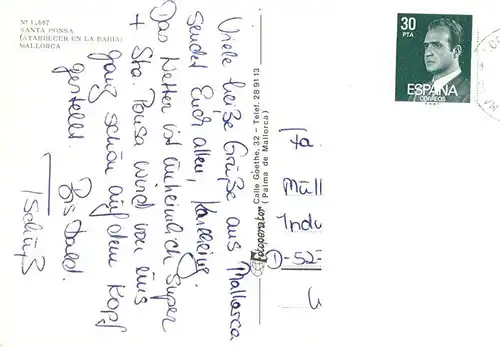 Nº 1,687
SANTA PONSA
(ATARDECER EN LA BAHIA)
MALLORCA
Viele heiße Grüße aus Mallorca
sendet Euch allen, Karlheinz.
Das Wetter ist unheimlich super
+ Sta. Ponsa wird von uns
ganz schön auf dem Kopf
gestellt. Bis bald.
Tschüß
Fotoperator Calle Goethe, 32 - Telef. 28 91 13
(Palma de Mallorca)
30
PTA
ESPAÑA
CORREOS
Fa
Müll
Indu
D-52